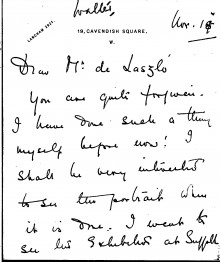 Wallis,
Nov. 18
LANGHAM 2901.
19, CAVENDISH SQUARE,
W.
Dear Mr de László
You are quite forgiven.
I have done such a thing
myself before now! I
shall be very interested
to see the portrait when
it is done. I went to
see his Exhibition at Suffolk